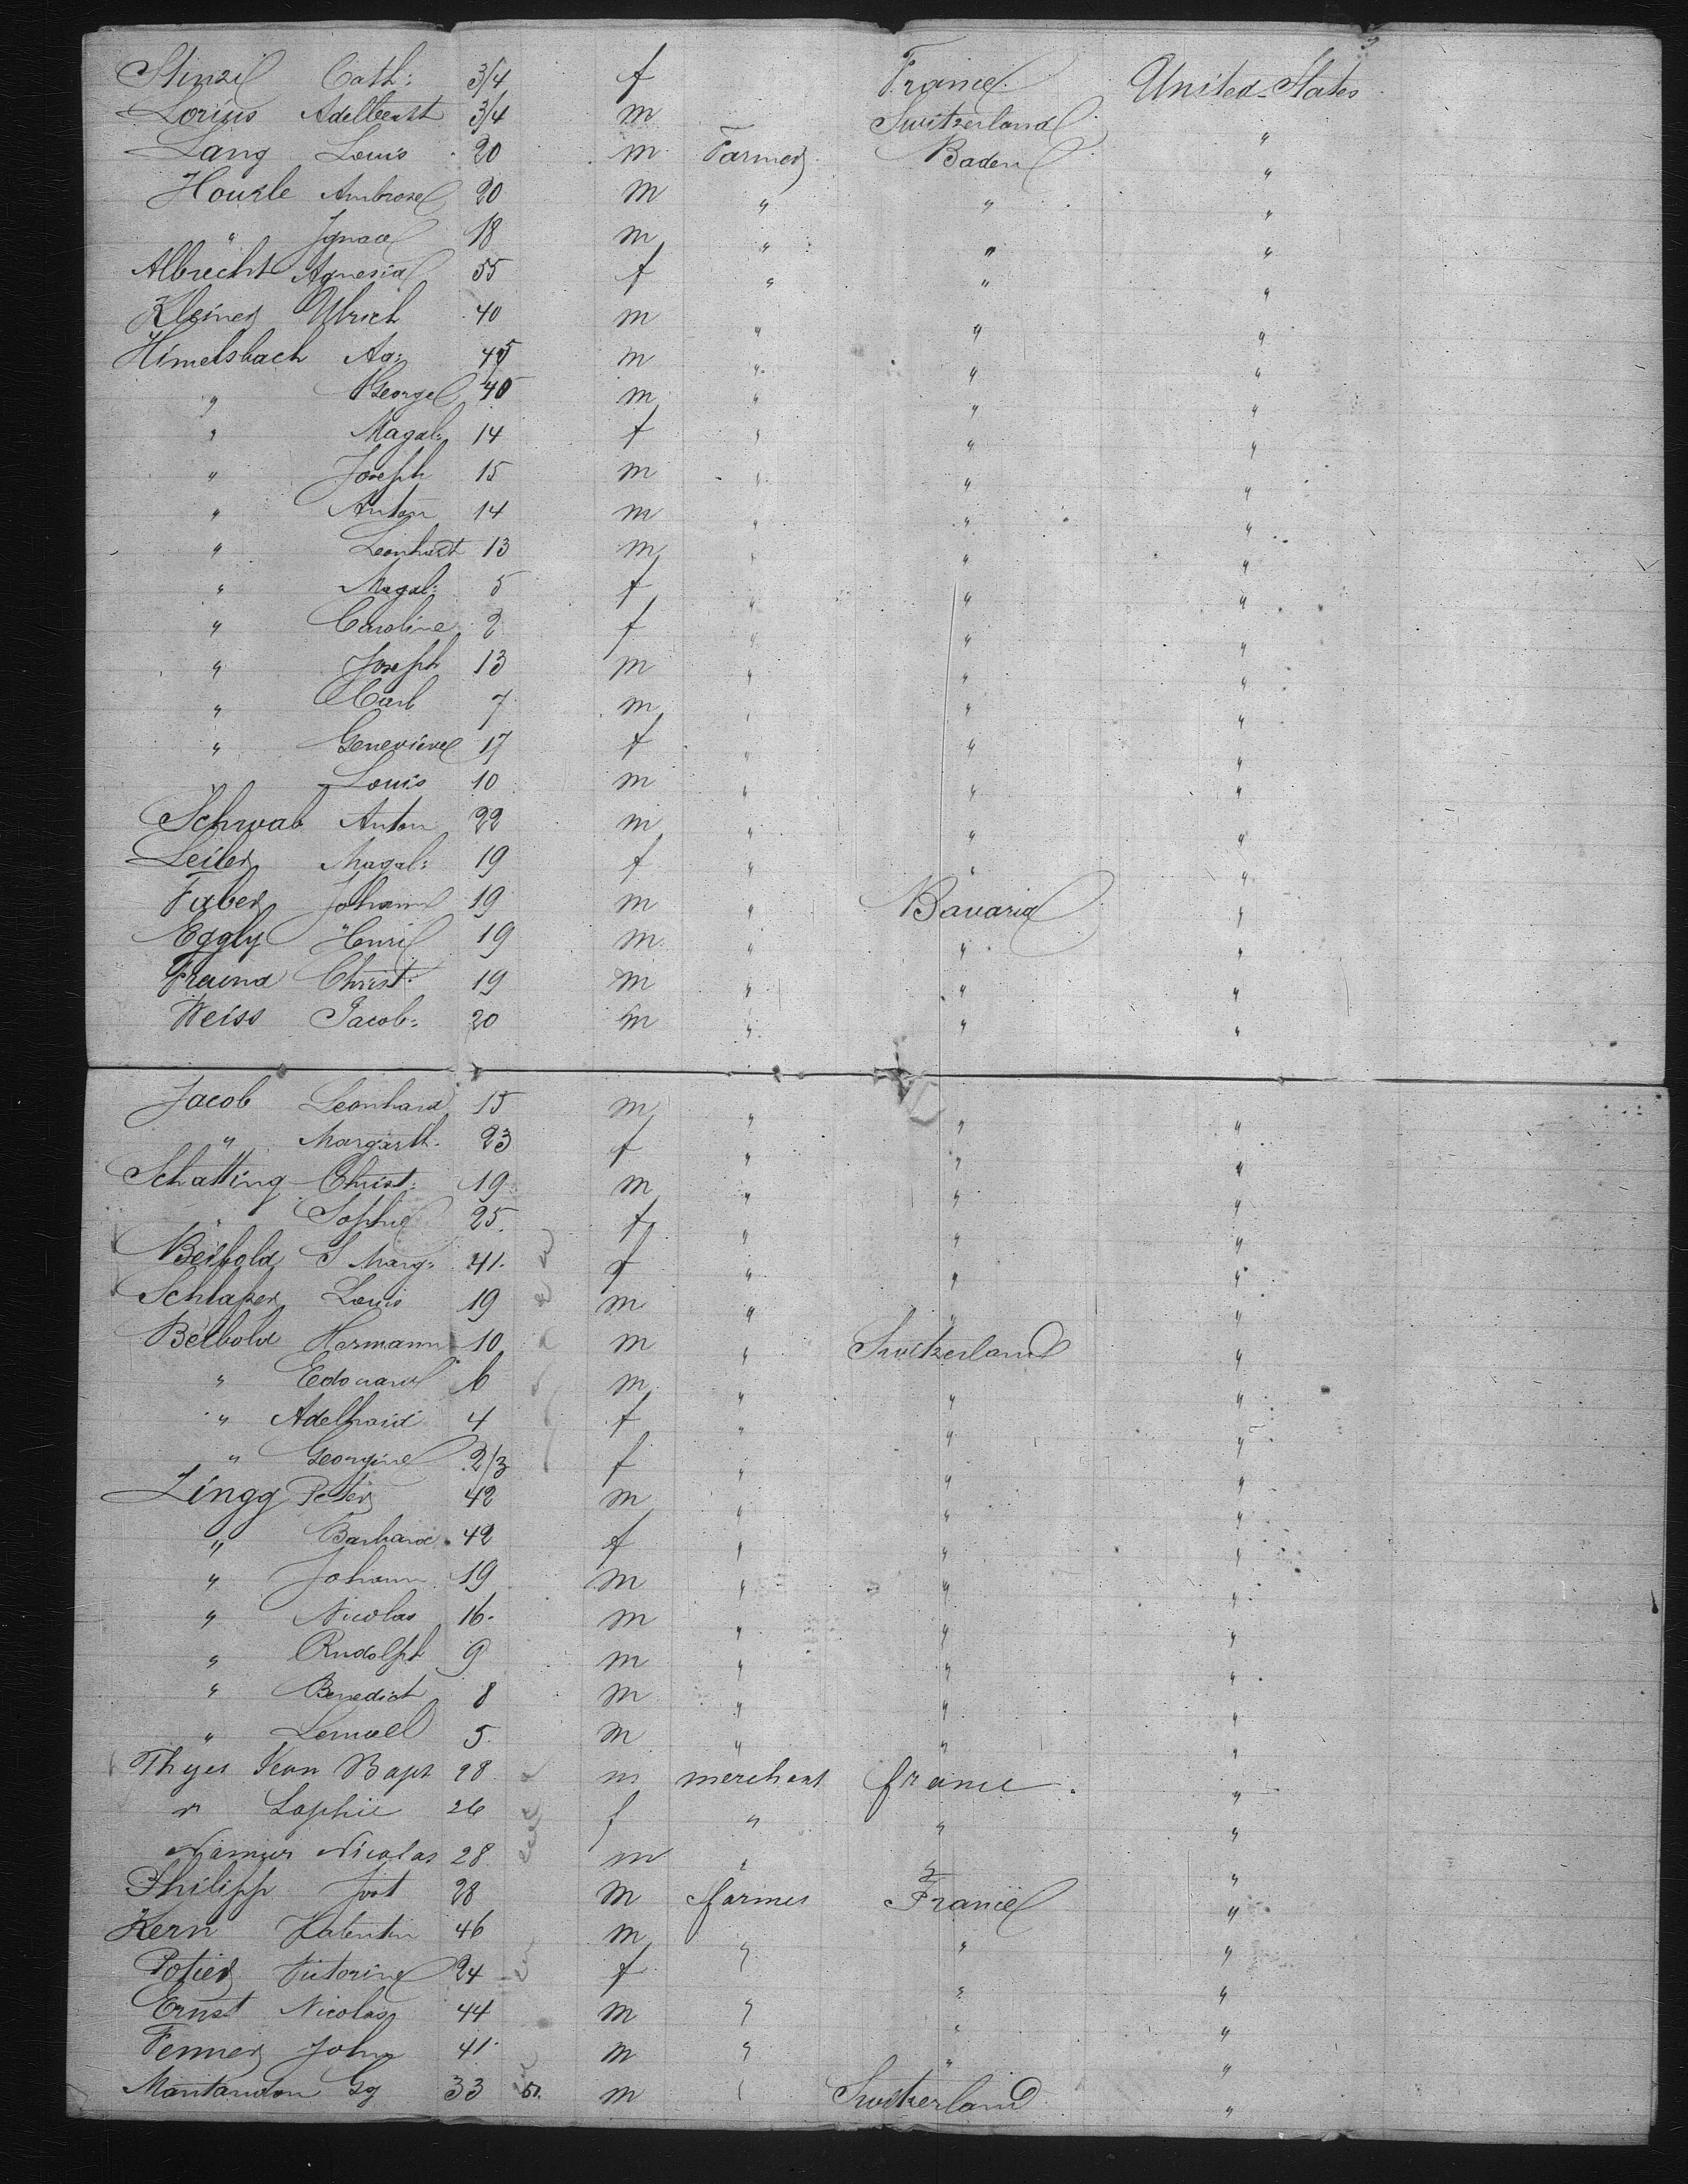 Stinzil Cath: 3/4 f France United-States
Lorius Adelbert 3/4 m Switzerland "
Lang Louis 20 m Farmer Baden "
Hourle Ambrose 20 m " " "
" Ignace 18 m " " "
Albrecht Agnesia 55 f " " "
Kleiner Ulrich 40 m " " "
Himelsbach Aa: 45 m " " "
" George 40 m " " "
" Magal: 14 f " " "
" Joseph 15 m " " "
" Anton 14 m " " "
" Leonhart 13 m " " "
" Magal: 5 f " " "
" Caroline 2 f " " "
" Joseph 13 m " " "
" Carl 7 m " " "
" Genevieve 17 f " " "
" Louis 10 m " " "
Schwab Anton 22 m " " "
Leiler Magal: 19 f " " "
Faber Johann 19 m " Bavaria "
Eggly Henri 19 m " " "
Freund Christ: 19 m " " "
Weiss Jacob: 20 m " " "
Jacob Leonhard 15 m " " "
" Margarth. 23 f " " "
Schatting Christ: 19 m " " "
" Sophie 25 f " " "
Beibold S Marg: 41 f " " "
Schlafer Louis 19 m " " "
Beibold Hermann 10 m " Switzerland "
" Edouard 6 m " " "
" Adelhaid 4 f " " "
" Georgine 2/3 f " " "
Zingg Peter 42 m " " "
" Barbara 42 f " " "
" Johann 19 m " " "
" Nicolas 16 m " " "
" Rudolph 9 m " " "
" Benedict 8 m " " "
" Lemuel 5 m " " "
Thyes Jean Bapt 28 m merchant france "
" Sophie 26 f " " "
Namur Nicolas 28 m " " "
Philipp Jost 28 m farmer France "
Kern Valentin 46 m " " "
Potier Victorine 24 f " "
Ernst Nicolas 44 m " " "
Fenner John 41 m " " "
Mantandon Gg 33 51. m " Switzerland "